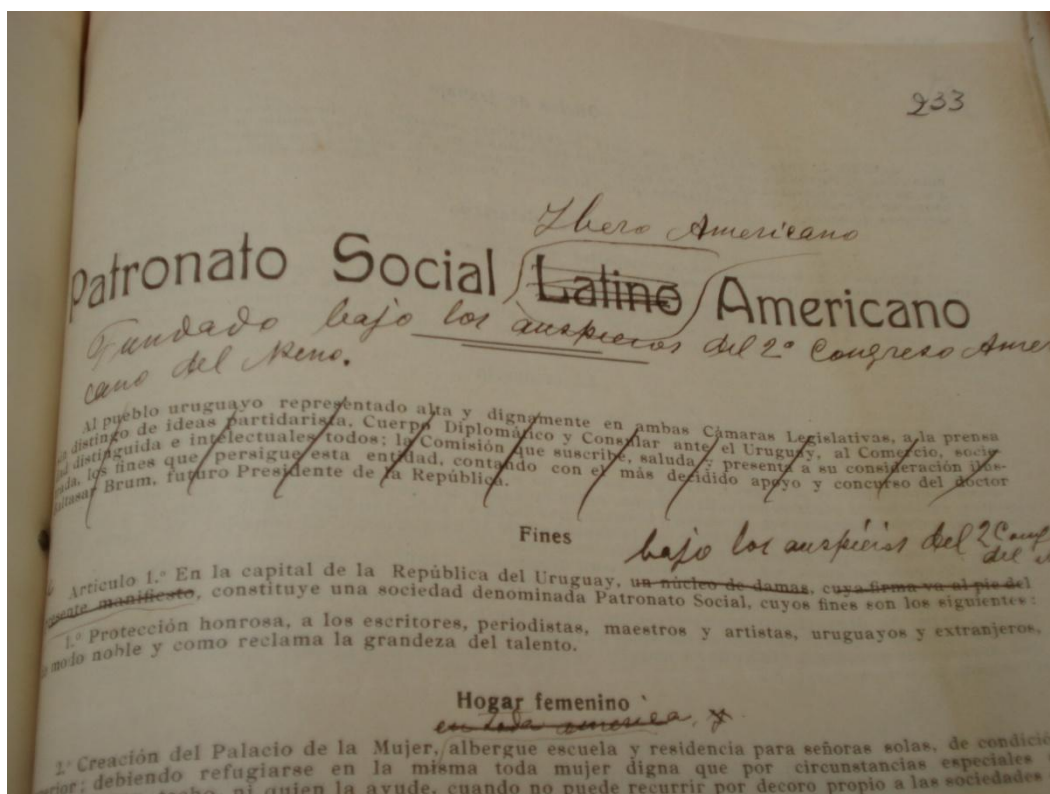 233
Ibero Americano
Patronato Social Latino Americano
Fundado bajo los auspicios del 2º Congreso Ame
cano del Neno.
Al pueblo uruguayo representado alta y dignamente en ambas Cámaras Legislativas, a la prensa
distingo de ideas partidarista, Cuerpo Diplomático y Consular ante el Uruguay, al Comercio, socie-
distinguida e intelectuales todos; la Comisión que suscribe, saluda y presenta a su consideración ilus-
los fines que persigue esta entidad, contando con el más decidido apoyo y concurso del doctor
Baltasar Brum, futuro Presidente de la República.
Fines
bajo los auspicios del 2 Cong
del
Artículo 1.º En la capital de la República del Uruguay, un núcleo de damas, cuya firma va al pie del
manifiesto, constituye una sociedad denominada Patronato Social, cuyos fines son los siguientes:
1.º Protección honrosa, a los escritores, periodistas, maestros y artistas, uruguayos y extranjeros,
modo noble y como reclama la grandeza del talento.
Hogar femenino
en toda america, y
2.º Creación del Palacio de la Mujer, albergue escuela y residencia para señoras solas, de condició
debiendo refugiarse en la misma toda mujer digna que por circunstancias especiales
ni quien la ayude, cuando no puede recurrir por decoro propio a las sociedades